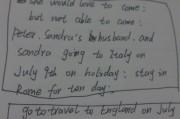 she would love to come:
but not able to come:
Peter. Sandra's husband. and
Sandra going to Italy on
July 9th on holiday: stay in
Rome for ten day.
go to travel to England on July